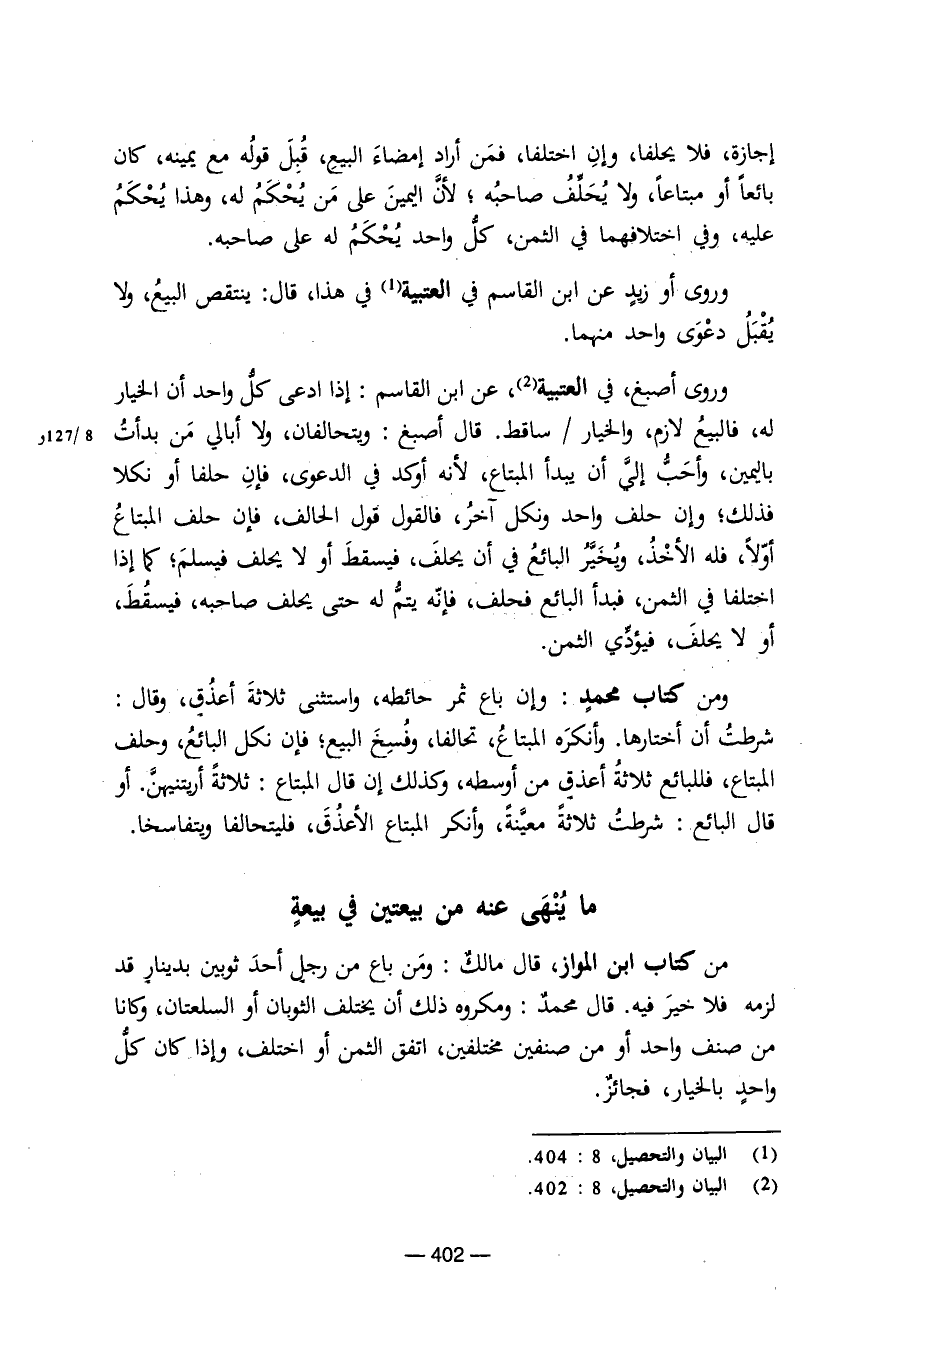 إجازة، فلا يحلفا، وإنِ اختلفا، فمَن أراد إمضاءَ البيعِ، قُبِلَ قولُه مع يمينه، كان
بائعاً أو مبتاعاً، ولا يُحَلَّفُ صاحبُه ؛ لأنَّ اليمينَ على مَن يُحْكَمُ له، وهذا يُحْكَمُ
عليه، وفي اختلافهما في الثمن، كلُّ واحد يُحْكَمُ له على صاحبه.
وروى أو زيدٍ عن ابن القاسم في العتبية(1) في هذا، قال: ينتقص البيعُ، ولا
يُقْبَلُ دعْوَى واحد منهما.
وروى أصبغ، في العتبية(2)، عن ابن القاسم : إذا ادعى كلُّ واحد أن الخيار
له، فالبيعُ لازم، والخيار / ساقط. قال أصبغ : ويتحالفان، ولا أبالي مَن بدأتُ 8 /127و
باليمين، وأحَبُّ إليَّ أن يبدأ المبتاع، لأنه أوكد في الدعوى، فإنِ حلفا أو نكلا
فذلك؛ وإن حلف واحد ونكل آخرُ، فالقول قول الحالف، فإن حلف المبتاعُ
أوّلاً، فله الأخْذُ، ويُخَيَّرُ البائعُ في أن يحلفَ، فيسقطَ أو لا يحلف فيسلمَ؛ كما إذا
اختلفا في الثمن، فبدأ البائع فحلف، فإنّه يتمُّ له حتى يحلف صاحبه، فيسقُطَ،
أو لا يحلفَ، فيؤدِّي الثمن.
ومن كتاب محمدٍ : وإن باع ثمر حائطه، واستثنى ثلاثةَ أعذُقٍ، وقال :
شرطتُ أن أختارها. وأنكرَه المبتاعُ، تحالفا، وفُسِخَ البيع؛ فإن نكل البائعُ، وحلف
المبتاع، فللبائع ثلاثةُ أعذقٍ من أوسطه، وكذلك إن قال المبتاع : ثلاثةً أريتنيهنَّ. أو
قال البائع : شرطتُ ثلاثةً معيَّنةً، وأنكر المبتاع الأعذُقَ، فليتحالفا ويتفاسخا.
ما يُنْهَى عنه من بيعتين في بيعةٍ
من كتاب ابن المواز، قال مالكٌ : ومَن باع من رجلٍ أحدَ ثوبين بدينارٍ قد
لزمه فلا خيرَ فيه. قال محمدٌ : ومكروه ذلك أن يختلف الثوبان أو السلعتان، وكانا
من صنف واحد أو من صنفين مختلفين، اتفق الثمن أو اختلف، وإذا كان كلُّ
واحدٍ بالخيار، فجائزٌ.
(1) البيان والتحصيل، 8 : 404.
(2) البيان والتحصيل، 8 : 402.
— 402 —